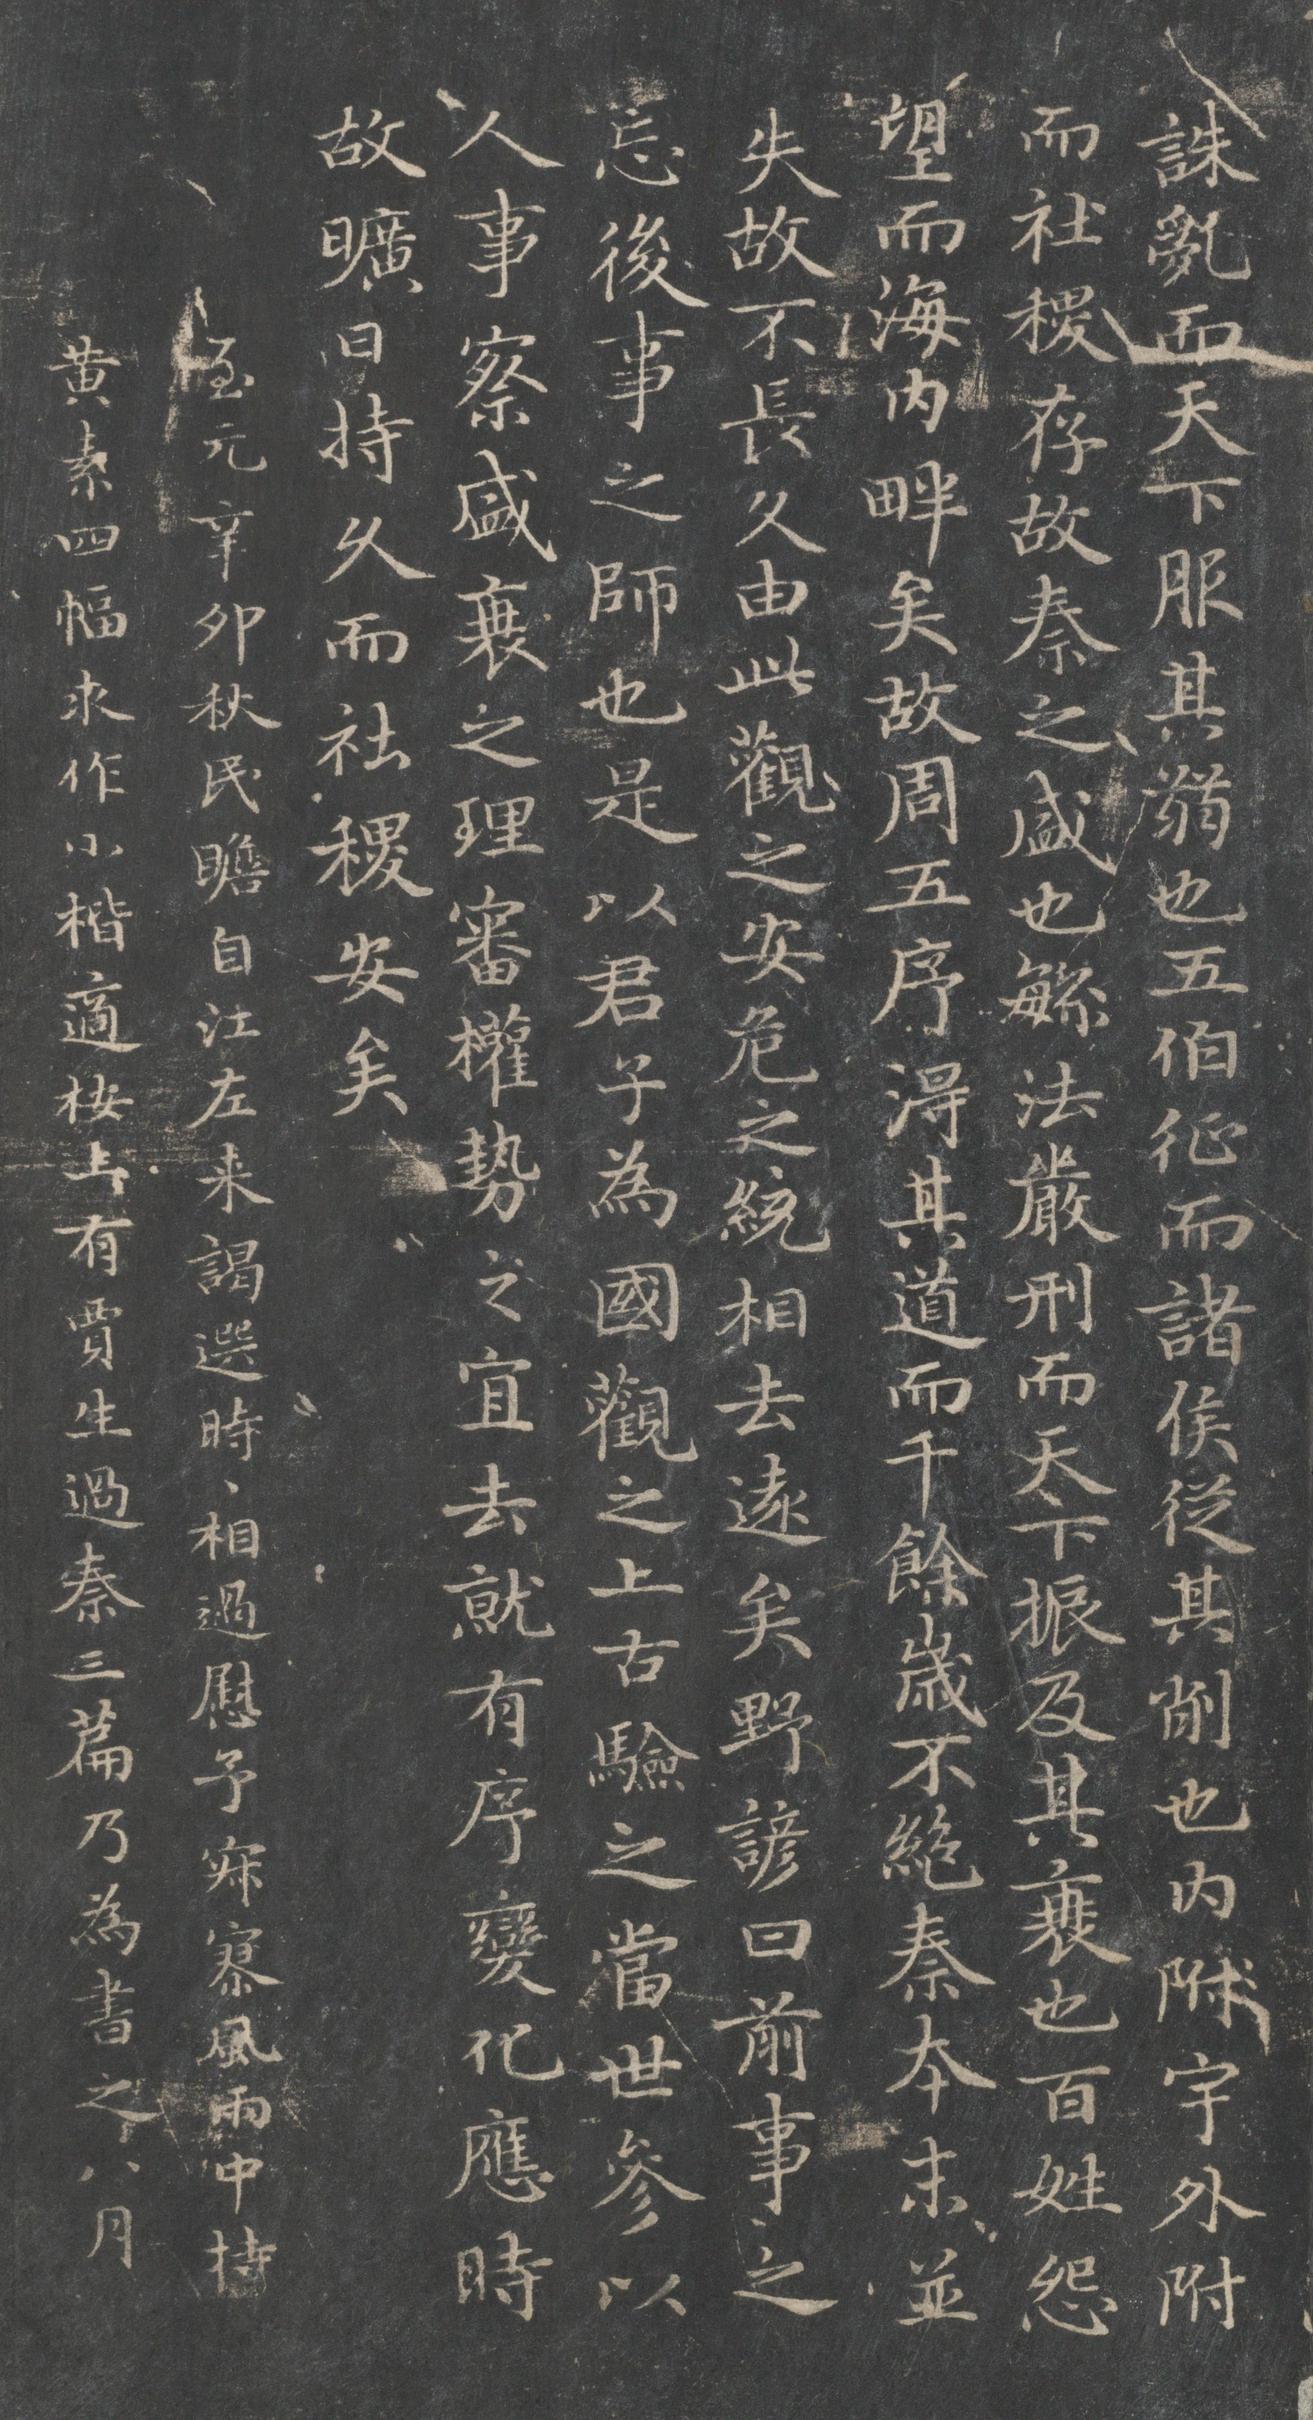 誅亂而天下服其弱也五伯征而諸侯從其削也内附宇外附
而社稷存故秦之盛也繁法嚴刑而天下振及其衰也百姓怨
望而海内畔矣故周五序淂其道而千餘歲不絶秦夲末並
失故不長久由此觀之安危之統相去遠矣野諺曰前事之不
忘後事之師也是以君子為國觀之上古驗之當世參以
人事察盛衰之理審權勢之宜去就有序變化應時
故曠日持久而社稷安矣
至元辛卯秋民瞻自江左来謁選時、相過慰予寂寮風雨中持
黄素四幅求作小楷適桉上有賈生過秦三篇乃為書之八月